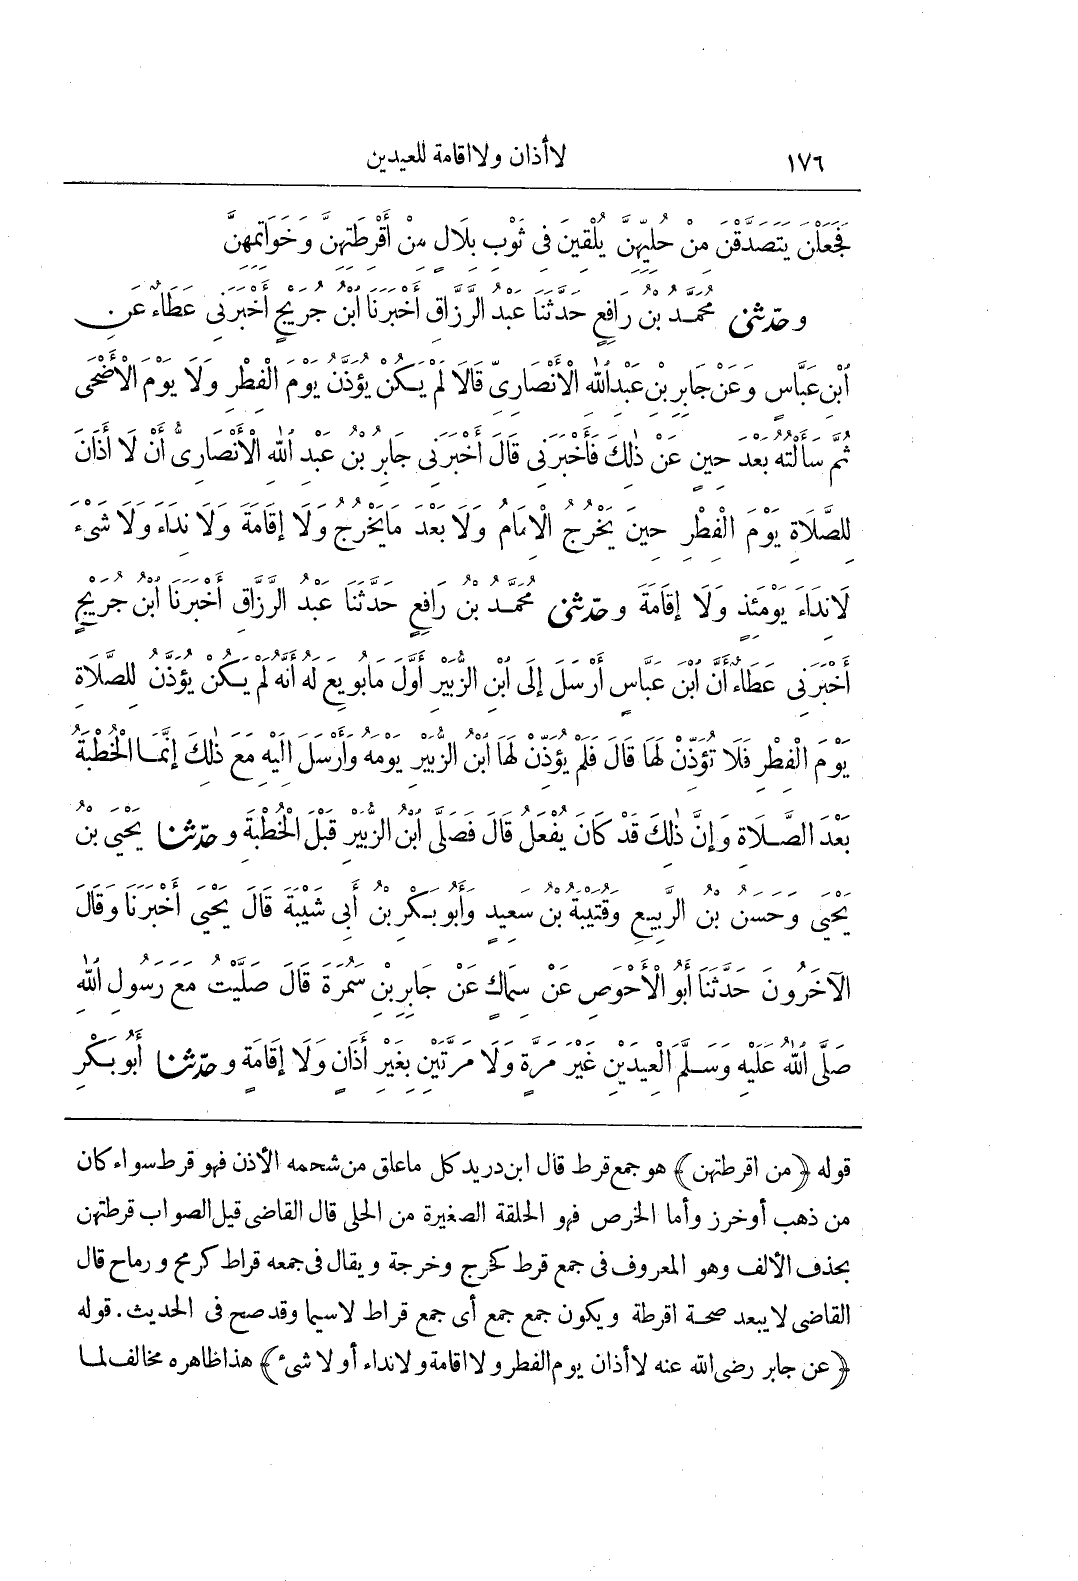 ١٧٦ لا أذان ولا اقامة للعيدين
فَجَعَلْنَ يَتَصَدَّقْنَ مِنْ حُلِيِّهِنَّ يُلْقِينَ فِى ثَوْبِ بِلَالٍ مِنْ أَقْرِطَتِهِنَّ وَخَوَاتِمِهِنَّ
وحَدَّثَنِى مُحَمَّدُ بْنُ رَافِعٍ حَدَّثَنَا عَبْدُ الرَّزَّاقِ أَخْبَرَنَا ابْنُ جُرَيْجٍ أَخْبَرَنِى عَطَاءٌ عَنِ
ابْنِ عَبَّاسٍ وَعَنْ جَابِرِ بْنِ عَبْدِ اللهِ الْأَنْصَارِىِّ قَالَا لَمْ يَكُنْ يُؤَذَّنُ يَوْمَ الْفِطْرِ وَلَا يَوْمَ الْأَضْحَى
ثُمَّ سَأَلْتُهُ بَعْدَ حِينٍ عَنْ ذٰلِكَ فَأَخْبَرَنِى قَالَ أَخْبَرَنِى جَابِرُ بْنُ عَبْدِ اللهِ الْأَنْصَارِىُّ أَنْ لَا أَذَانَ
لِلصَّلَاةِ يَوْمَ الْفِطْرِ حِينَ يَخْرُجُ الْإِمَامُ وَلَا بَعْدَ مَا يَخْرُجُ وَلَا إِقَامَةَ وَلَا نِدَاءَ وَلَا شَىْءَ
لَا نِدَاءَ يَوْمَئِذٍ وَلَا إِقَامَةَ وحَدَّثَنِى مُحَمَّدُ بْنُ رَافِعٍ حَدَّثَنَا عَبْدُ الرَّزَّاقِ أَخْبَرَنَا ابْنُ جُرَيْجٍ
أَخْبَرَنِى عَطَاءٌ أَنَّ ابْنَ عَبَّاسٍ أَرْسَلَ إِلَى ابْنِ الزُّبَيْرِ أَوَّلَ مَا بُويِعَ لَهُ أَنَّهُ لَمْ يَكُنْ يُؤَذَّنُ لِلصَّلَاةِ
يَوْمَ الْفِطْرِ فَلَا تُؤَذِّنْ لَهَا قَالَ فَلَمْ يُؤَذِّنْ لَهَا ابْنُ الزُّبَيْرِ يَوْمَهُ وَأَرْسَلَ إِلَيْهِ مَعَ ذٰلِكَ إِنَّمَا الْخُطْبَةُ
بَعْدَ الصَّلَاةِ وَإِنَّ ذٰلِكَ قَدْ كَانَ يُفْعَلُ قَالَ فَصَلَّى ابْنُ الزُّبَيْرِ قَبْلَ الْخُطْبَةِ وحَدَّثَنَا يَحْيَى بْنُ
يَحْيَى وَحَسَنُ بْنُ الرَّبِيعِ وَقُتَيْبَةُ بْنُ سَعِيدٍ وَأَبُو بَكْرِ بْنُ أَبِى شَيْبَةَ قَالَ يَحْيَى أَخْبَرَنَا وَقَالَ
الْآخَرُونَ حَدَّثَنَا أَبُو الْأَحْوَصِ عَنْ سِمَاكٍ عَنْ جَابِرِ بْنِ سَمُرَةَ قَالَ صَلَّيْتُ مَعَ رَسُولِ اللهِ
صَلَّى اللهُ عَلَيْهِ وَسَلَّمَ الْعِيدَيْنِ غَيْرَ مَرَّةٍ وَلَا مَرَّتَيْنِ بِغَيْرِ أَذَانٍ وَلَا إِقَامَةٍ وحَدَّثَنَا أَبُو بَكْرِ
قوله ﴿من اقرطتهن﴾ هو جمع قرط قال ابن دريد كل ما علق من شحمه الأذن فهو قرط سواء كان
من ذهب أو خرز وأما الخرص فهو الحلقة الصغيرة من الحلى قال القاضى قيل الصواب قرطتهن
بحذف الألف وهو المعروف فى جمع قرط كخرج وخرجة ويقال فى جمعه قراط كرمح ورماح قال
القاضى لا يبعد صحة اقرطة ويكون جمع جمع أى جمع قراط لاسيما وقد صح فى الحديث . قوله
﴿عن جابر رضى الله عنه لا أذان يوم الفطر ولا اقامة ولا نداء أو لا شىء﴾ هذا ظاهره مخالف لما